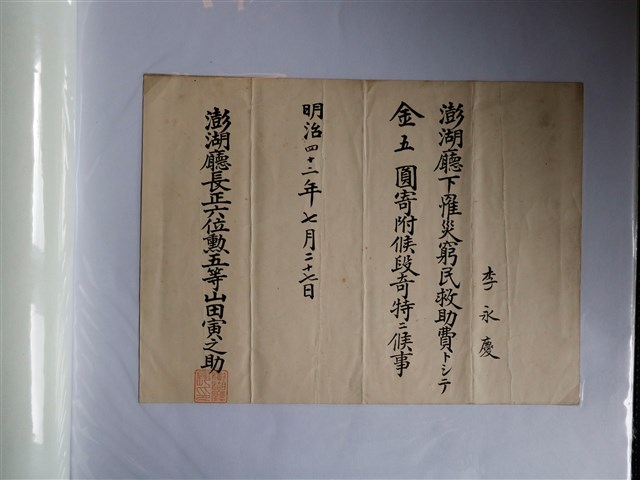 李永慶
澎湖廳下罹災窮民救助費トシテ
金五圓寄附候段奇特ニ候事
明治四十二年七月二十七日
澎湖廳長正六位勳五等山田寅之助